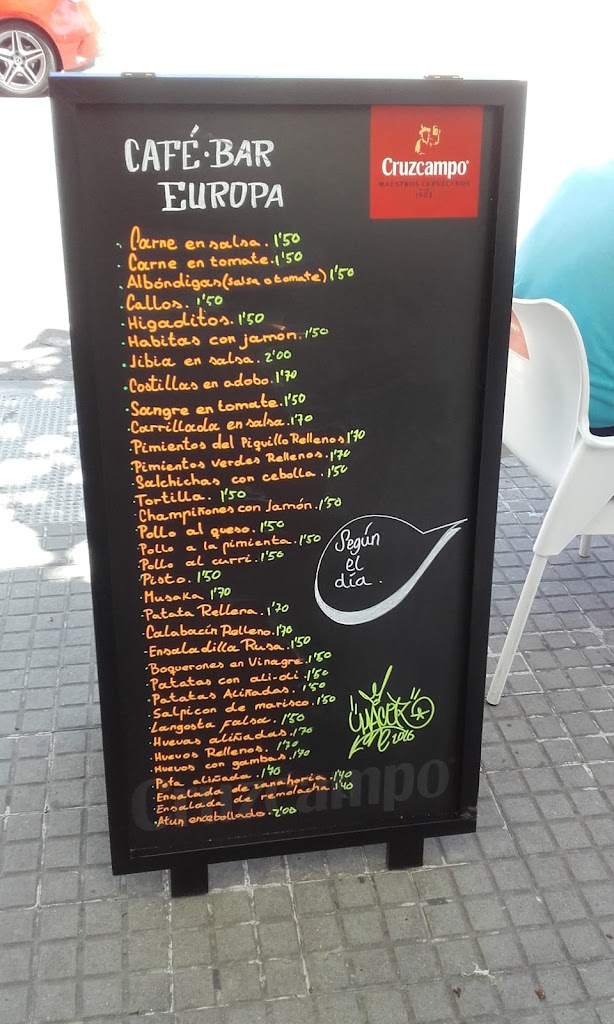 CAFÉ·BAR
EUROPA
Cruzcampo
MAESTROS CERVECEROS
1904
Carne en salsa. 1'50
Carne en tomate. 1'50
Albóndigas (salsa o tomate) 1'50
Callos. 1'50
Higaditos. 1'50
Habitas con jamón. 1'50
Jibia en salsa. 2'00
Costillas en adobo. 1'70
Sangre en tomate. 1'50
Carrillada en salsa. 1'70
Pimientos del Piquillo Rellenos 1'70
Pimientos verdes Rellenos. 1'70
Salchichas con cebolla. 1'50
Tortilla. 1'50
Champiñones con Jamón. 1'50
Pollo al queso. 1'50
Pollo a la pimienta. 1'50
Pollo al curri. 1'50
Pisto. 1'50
Musaka 1'70
Patata Rellena. 1'70
Calabacín Relleno. 1'70
Ensaladilla Rusa. 1'50
Boquerones en Vinagre. 1'50
Patatas con ali-oli. 1'50
Patatas Aliñadas. 1'50
Salpicon de marisco. 1'50
Langosta Falsa. 1'50
Huevas aliñadas. 1'70
Huevos Rellenos. 1'70
Huevos con gambas. 1'70
Pota aliñada. 1'40
Ensalada de zanahoria. 1'40
Ensalada de remolacha. 1'40
Atun encebollado. 2'00
Según
el
día.
2016
Cruzcampo